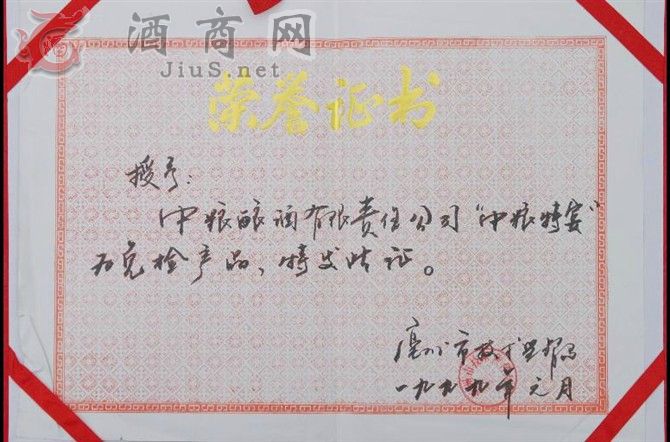 酒商网
JiuS.net
荣誉证书
授予：
中粮酿酒有限责任公司“中粮特宴”
为免检产品，特发此证。
亳州市技术监督局
一九九九年元月